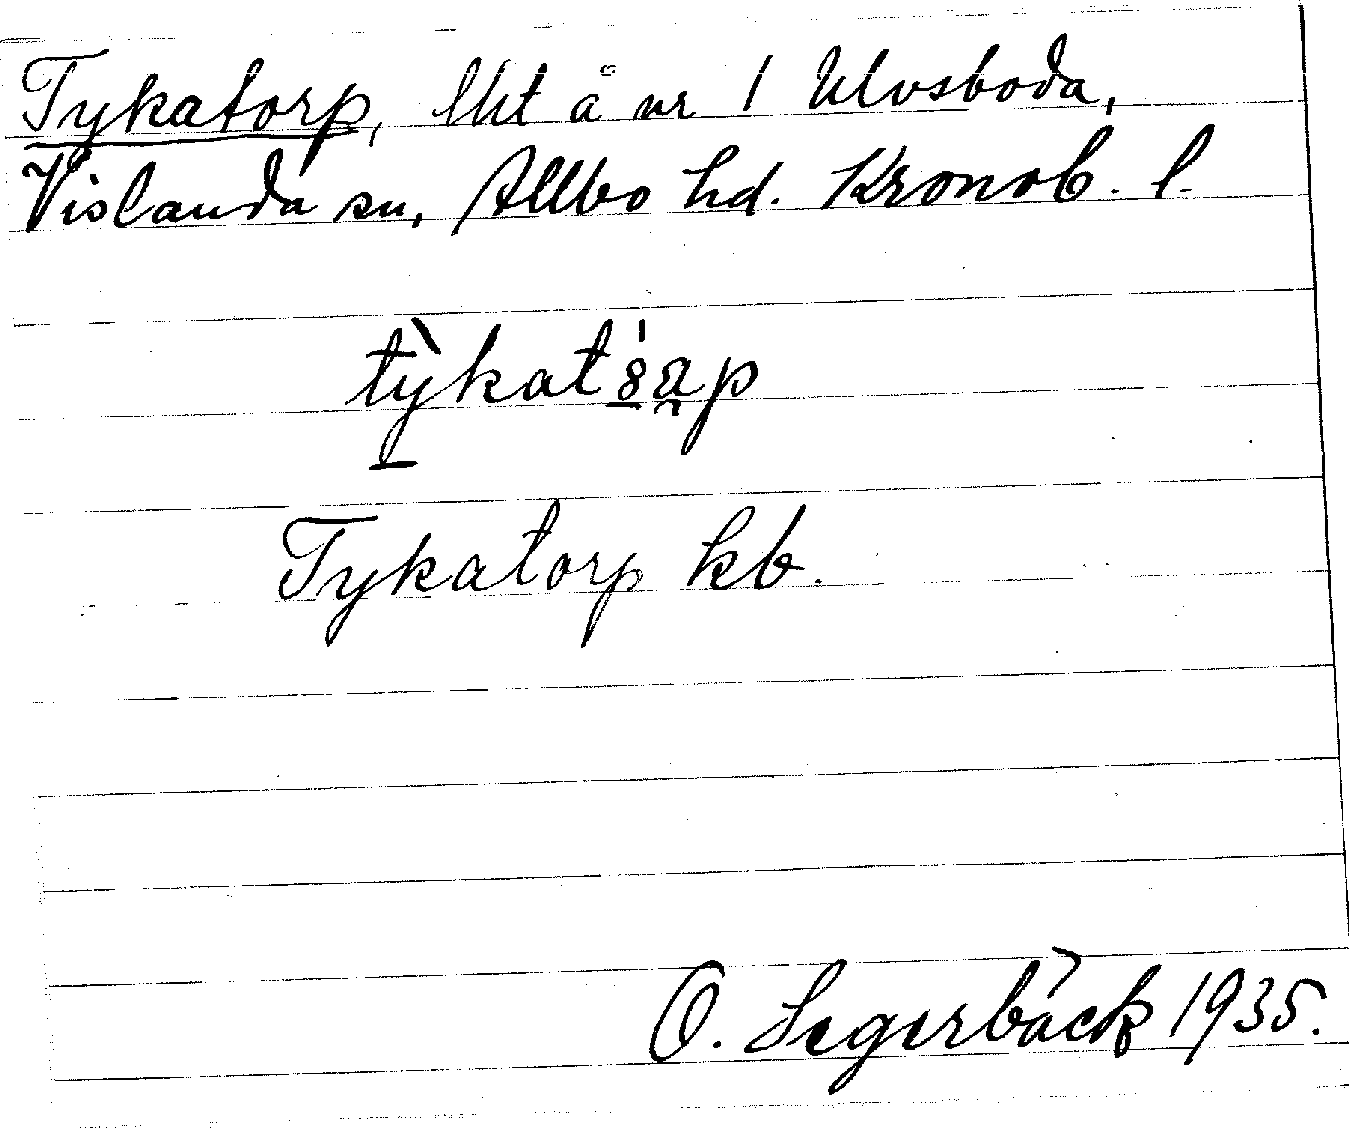 Tykatorp, lht å nr 1 Ulvsboda,
Vislanda sn, Allbo hd. Kronob. l.
Tykatorp kb.
O. Segerbäck 1935.